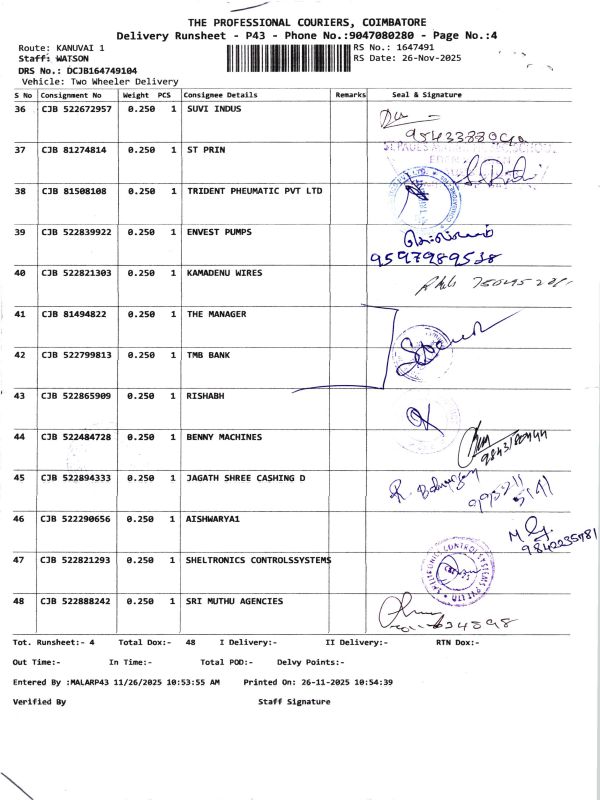 THE PROFESSIONAL COURIERS, COIMBATORE
Delivery Runsheet - P43 - Phone No.:9047080280 - Page No.:4
Route: KANUVAI 1
RS No.: 1647491
Staff: WATSON
RS Date: 26-Nov-2025
DRS No.: DCJB164749104
Vehicle: Two Wheeler Delivery
S No Consignment No Weight PCS Consignee Details Remarks Seal & Signature
36 CJB 522672957 0.250 1 SUVI INDUS
37 CJB 81274814 0.250 1 ST PRIN
38 CJB 81508108 0.250 1 TRIDENT PHEUMATIC PVT LTD
39 CJB 522839922 0.250 1 ENVEST PUMPS
9597989538
40 CJB 522821303 0.250 1 KAMADENU WIRES
41 CJB 81494822 0.250 1 THE MANAGER
42 CJB 522799813 0.250 1 TMB BANK
43 CJB 522865909 0.250 1 RISHABH
44 CJB 522484728 0.250 1 BENNY MACHINES
45 CJB 522894333 0.250 1 JAGATH SHREE CASHING D
46 CJB 522290656 0.250 1 AISHWARYA1
9842235781
47 CJB 522821293 0.250 1 SHELTRONICS CONTROLSSYSTEMS
48 CJB 522888242 0.250 1 SRI MUTHU AGENCIES
Tot. Runsheet:- 4 Total Dox:- 48 I Delivery:- II Delivery:- RTN Dox:-
Out Time:- In Time:- Total POD:- Delvy Points:-
Entered By :MALARP43 11/26/2025 10:53:55 AM Printed On: 26-11-2025 10:54:39
Verified By Staff Signature